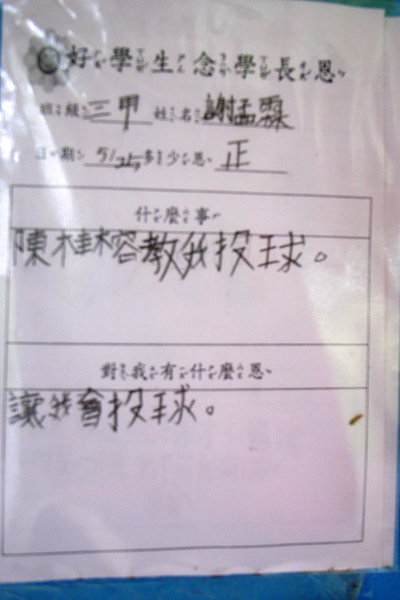 好學生念學長恩
班級：三甲 姓名：謝孟霖
日期：5/25 多少恩：正
什麼事
陳桂榕教我投球。
對我有什麼恩
讓我會投球。